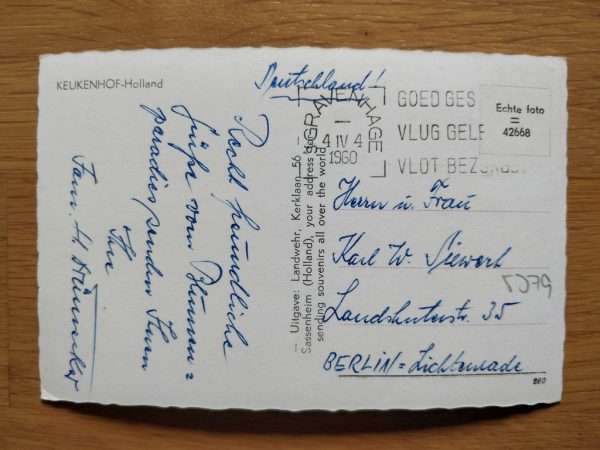 KEUKENHOF-Holland
Deutschland!
'S GRAVENHAGE
4 IV 4
1960
GOED GES
VLUG GELE
VLOT BEZORGD
Echte foto
=
42668
Recht freundliche
Grüße vom Blumen=
paradies senden Ihnen
Ihre
Fam. H.
— Uitgave: Landwehr, Kerklaan 56 —
Sassenheim (Holland), your address
sending souvenirs all over the world
Herrn u. Frau
Karl W. Siewert
Landshuterstr. 35
BERLIN=Lichtenrade
860